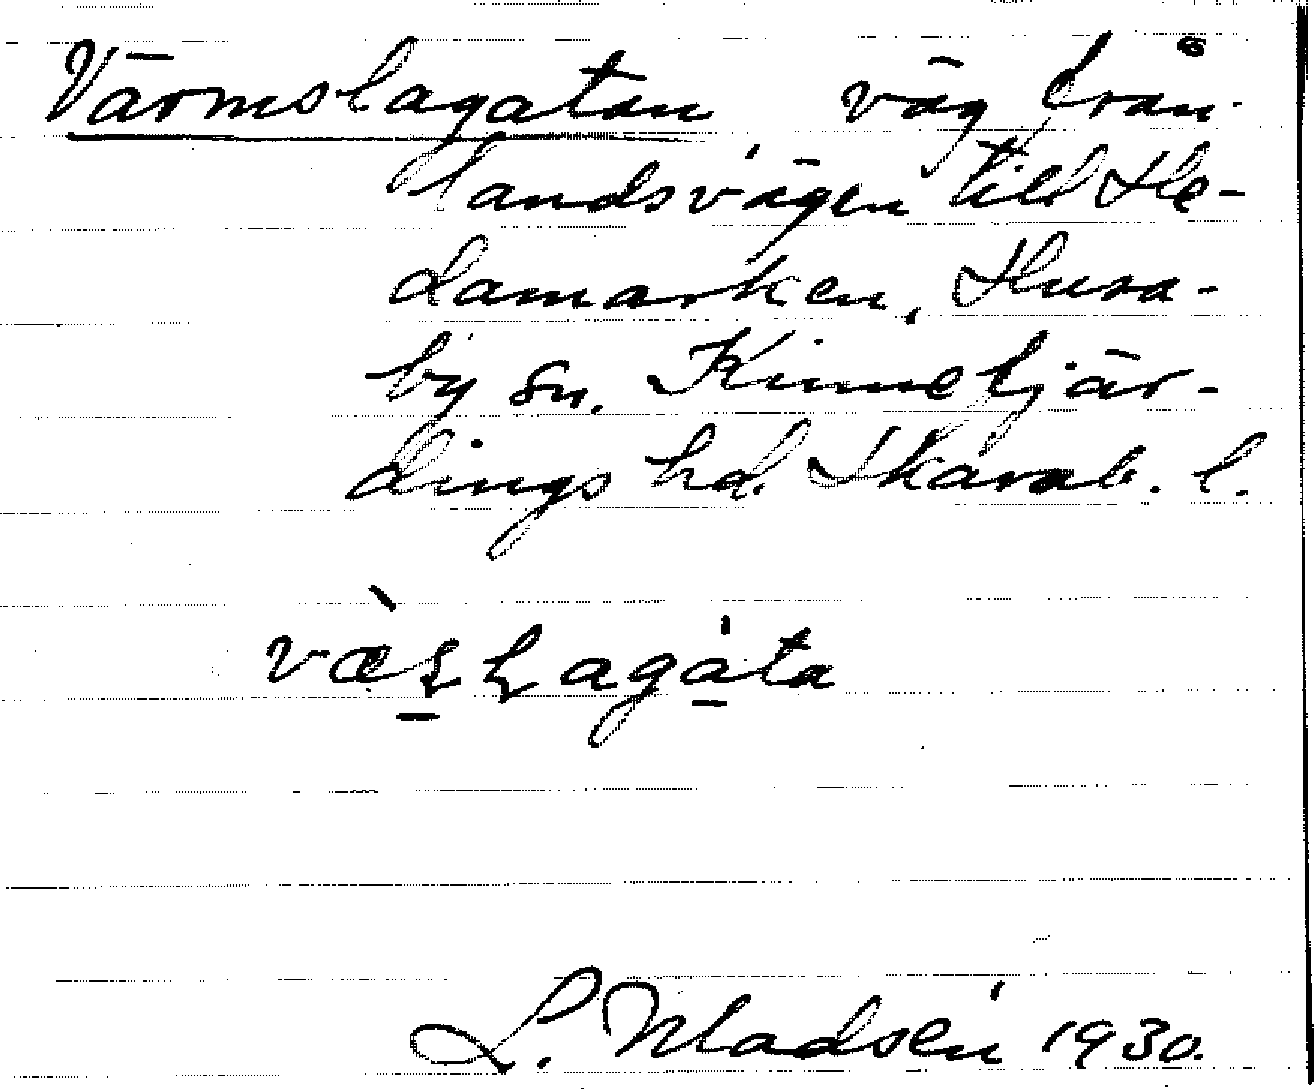 Värmslagatan väg från
landsvägen till He-
damarken, Husa-
by sn. Kinnefjär-
dings hd. Skarab. l.
L. Mladsén 1930.